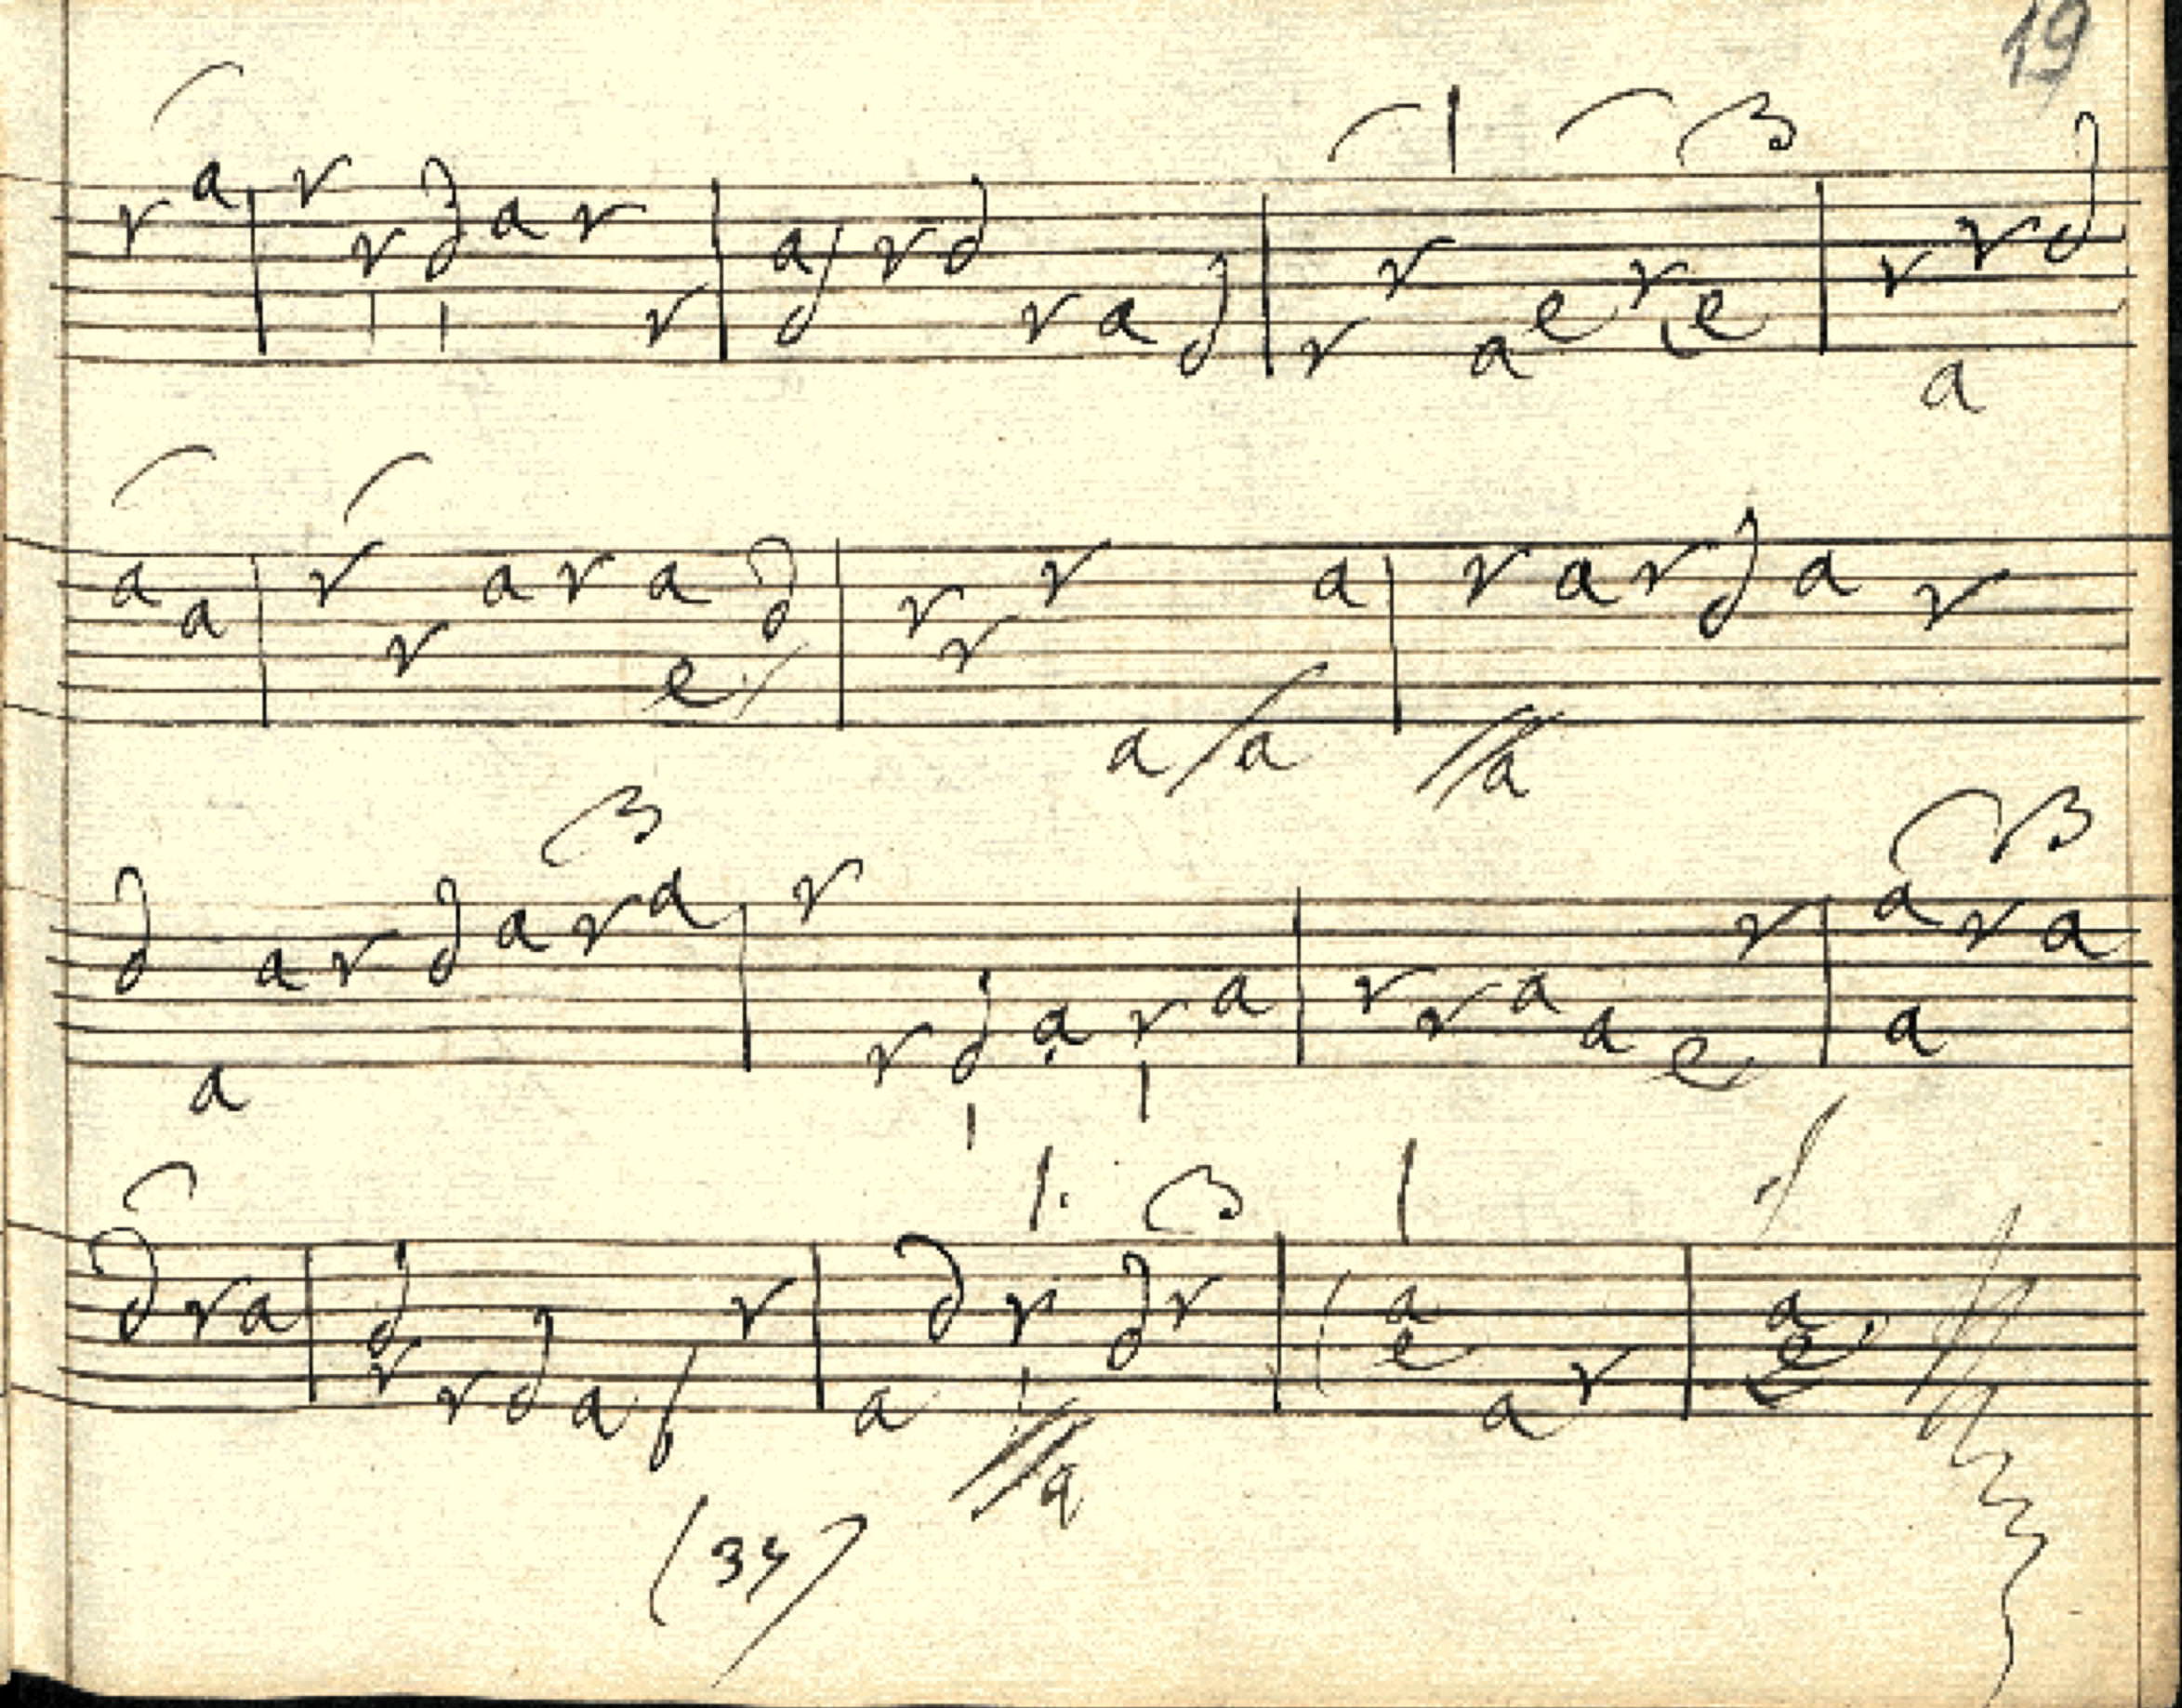 19
r a r r d a r r a d r d r a d r r a e r e r a r d
a a r r a r a e d r r r a a a a r a r d a r
d a a r d a r a r r d a r a r r a a e r a a r a
d r a d r r d a r a d r a d r a e a r a e
(34)